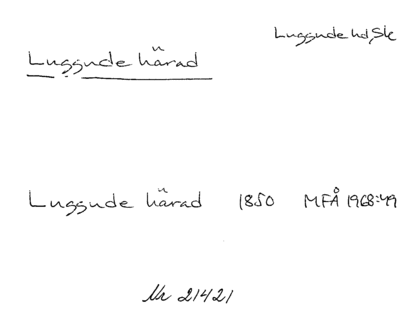 Luggude hd, Sk
Luggude härad
Luggude härad 1850 MFÅ 1968:49
Nr 21421